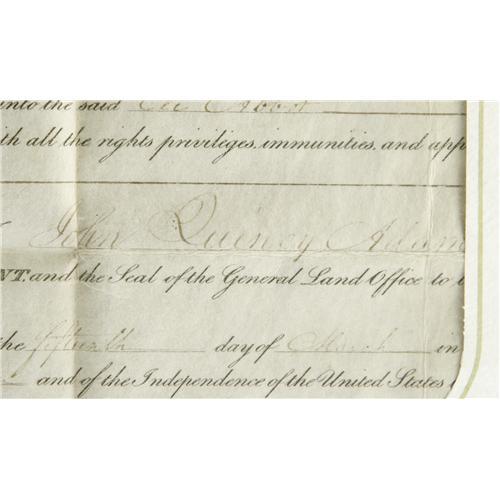 into the said
th all the rights privileges, immunities, and app
John Quincy Adam
NT. and the Seal of the General Land Office to b
the fifteenth day of March in
and of the Independence of the United States